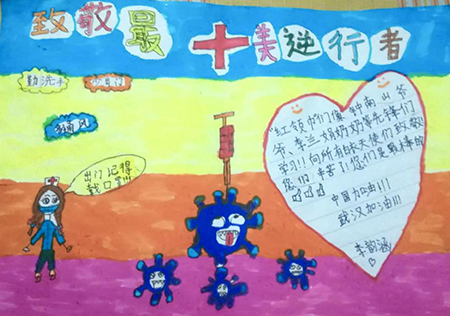 致敬最美逆行者
勤洗手
通风
出门记得
戴口罩!!!
"红领巾们像钟南山爷
爷、李兰娟奶奶等先锋们
学习!!向所有白衣天使们致敬
您们辛苦了!您们是最棒的
中国加油!!!
武汉加油!!!
李韵涵